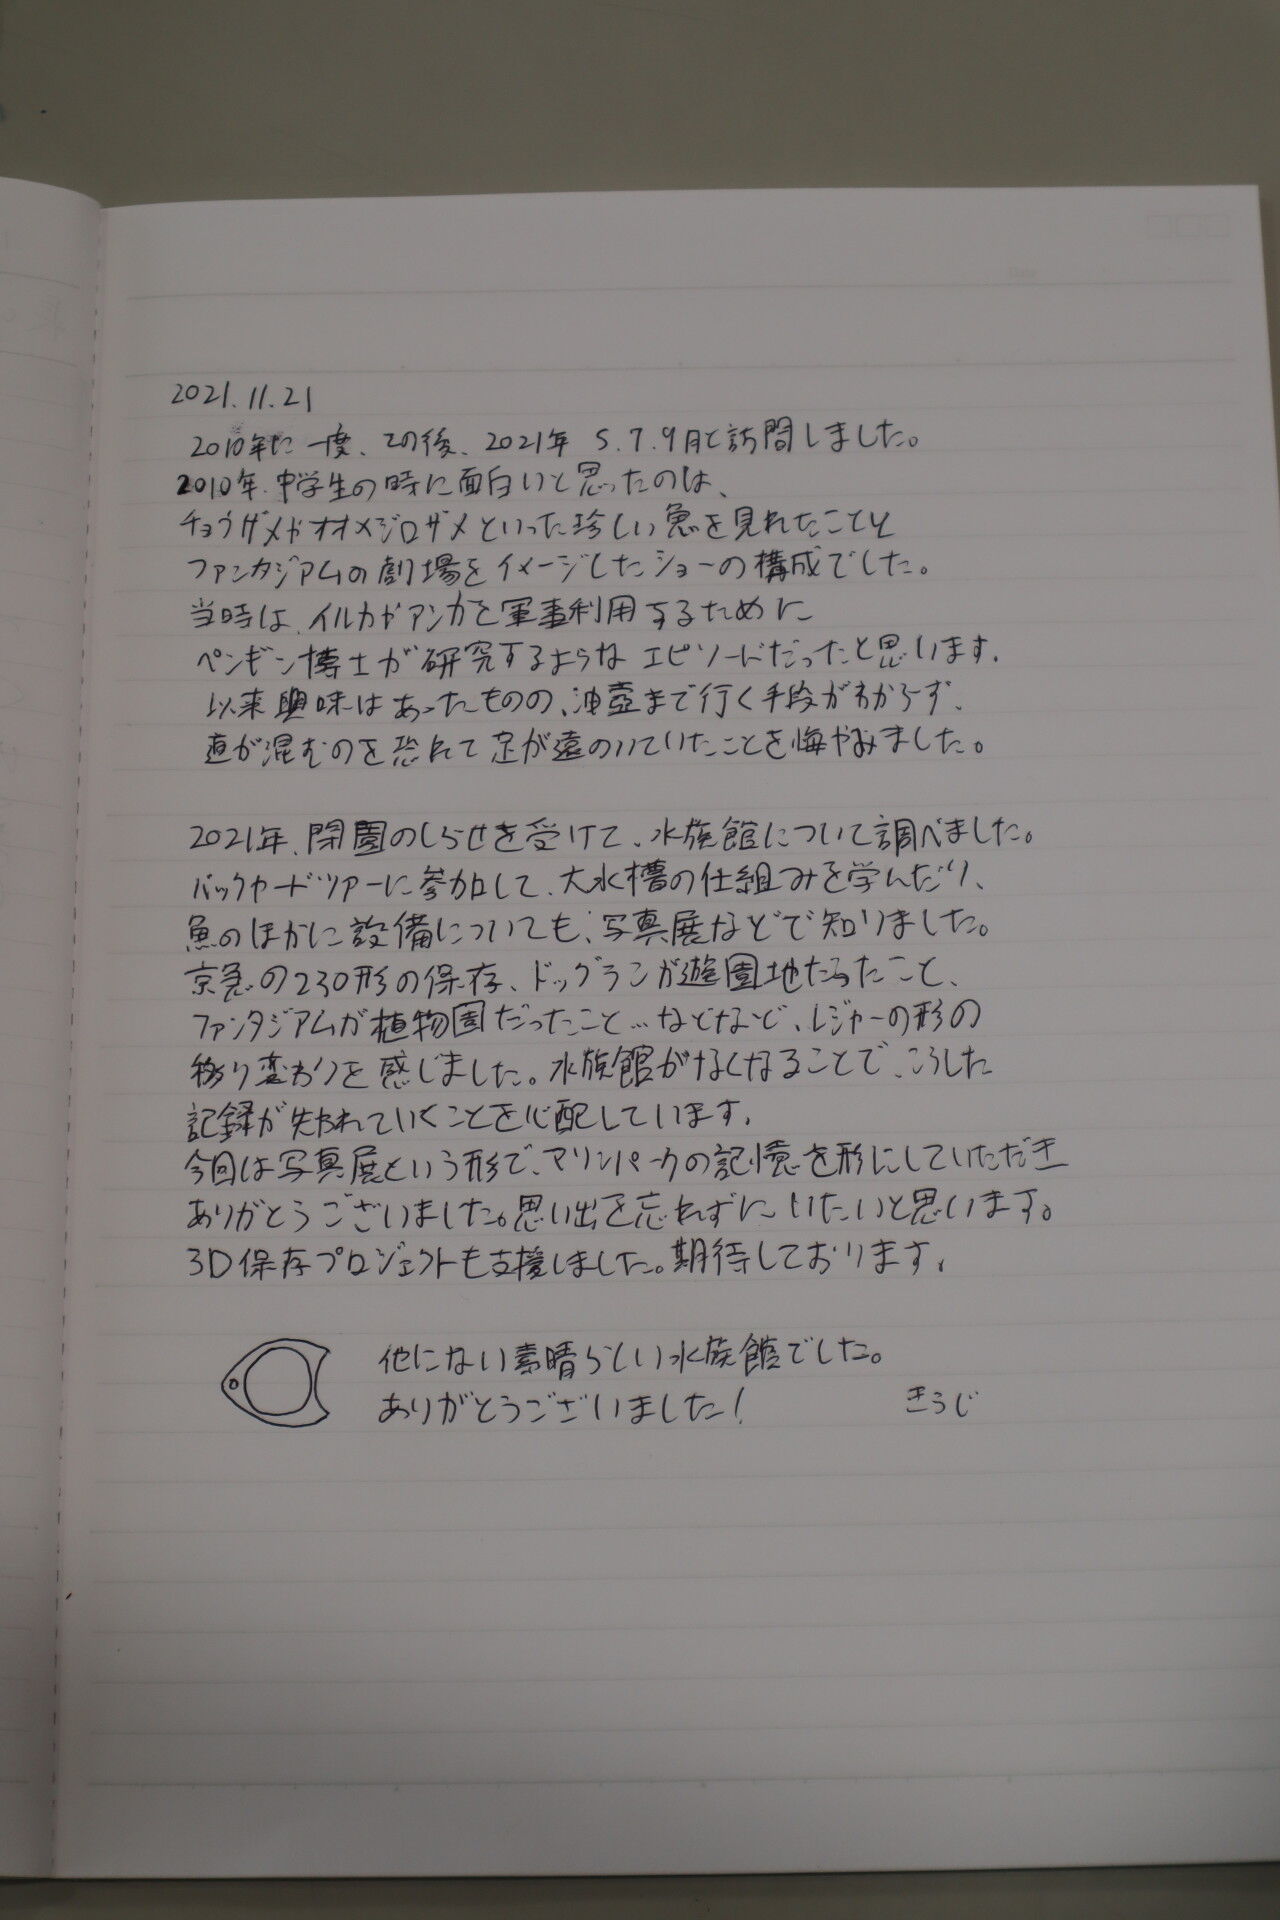 2021.11.21
2010年に一度、その後、2021年 5.7.9月と訪問しました。
2010年、中学生の時に面白いと思ったのは、
チョウザメやオオメジロザメといった珍しい魚を見れたことと
ファンタジアムの劇場をイメージしたショーの構成でした。
当時は、イルカやアシカを軍事利用するために
ペンギン博士が研究するようなエピソードだったと思います。
以来興味はあったものの、油壺まで行く手段がわからず、
道が混むのを恐れて足が遠のいていたことを悔やみました。
2021年、閉園のしらせを受けて、水族館について調べました。
バックヤードツアーに参加して、大水槽の仕組みを学んだり、
魚のほかに設備についても、写真展などで知りました。
京急の230形の保存、ドッグランが遊園地だったこと、
ファンタジアムが植物園だったこと…などなど、レジャーの形の
移り変わりを感じました。水族館がなくなることで、こうした
記録が失われていくことを心配しています。
今回は写真展という形で、マリンパークの記憶を形にしていただき
ありがとうございました。思い出を忘れずにいたいと思います。
3D保存プロジェクトも支援しました。期待しております。
他にない素晴らしい水族館でした。
ありがとうございました! きうじ